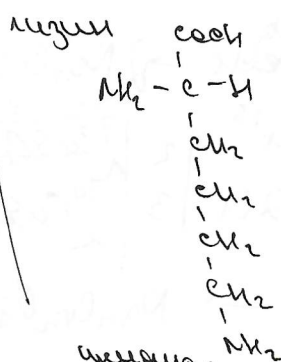 лизин
COOH
NH₂ - C - H
CH₂
CH₂
CH₂
CH₂
NH₂